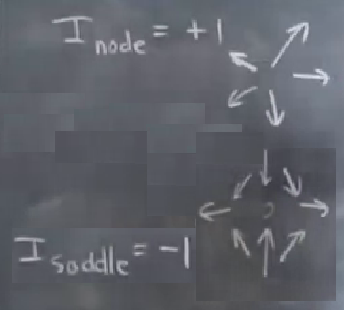 I node = +1
I saddle = -1